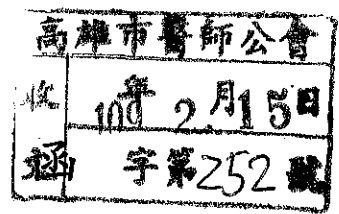 高雄市醫師公會
收 109年2月15日
文 字第252號